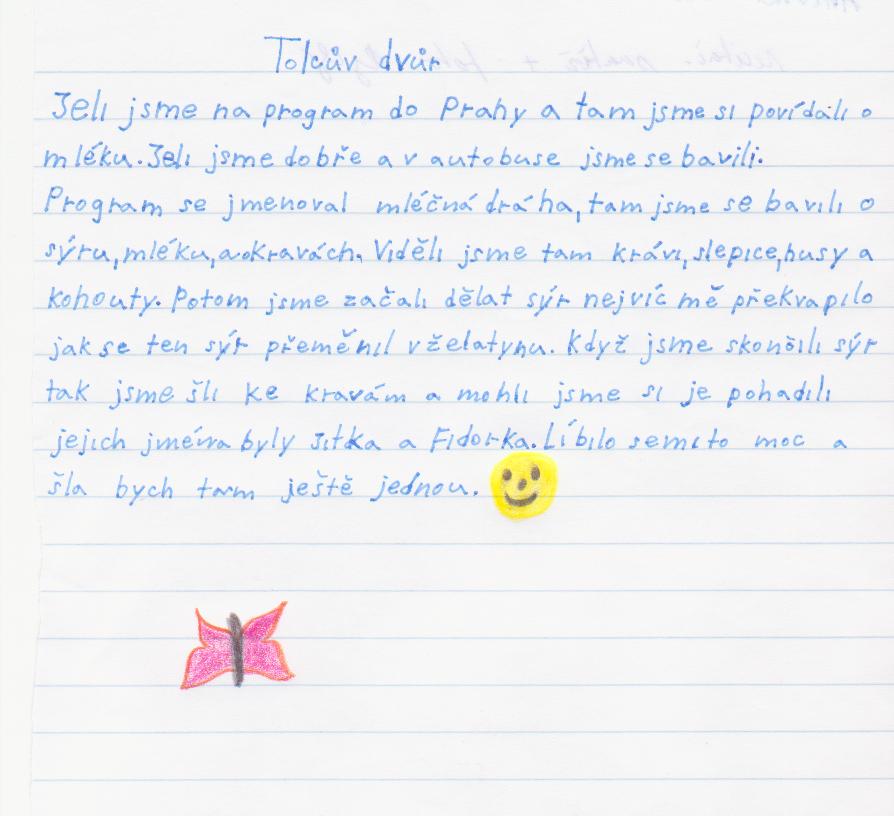 Tolcův dvůr
Jeli jsme na program do Prahy a tam jsme si povídali o
mléku. Jeli jsme dobře a v autobuse jsme se bavili.
Program se jmenoval mléčná dráha, tam jsme se bavili o
sýru, mléku, a o kravách. Viděli jsme tam krávi, slepice, husy a
kohouty. Potom jsme začali dělat sýr nejvíc mě překvapilo
jak se ten sýr přeměnil v želatynu. Když jsme skončili sýr
tak jsme šli ke kravám a mohli jsme si je pohadili
jejich jména byly Jitka a Fidorka. Líbilo se mi to moc a
šla bych tam ještě jednou.